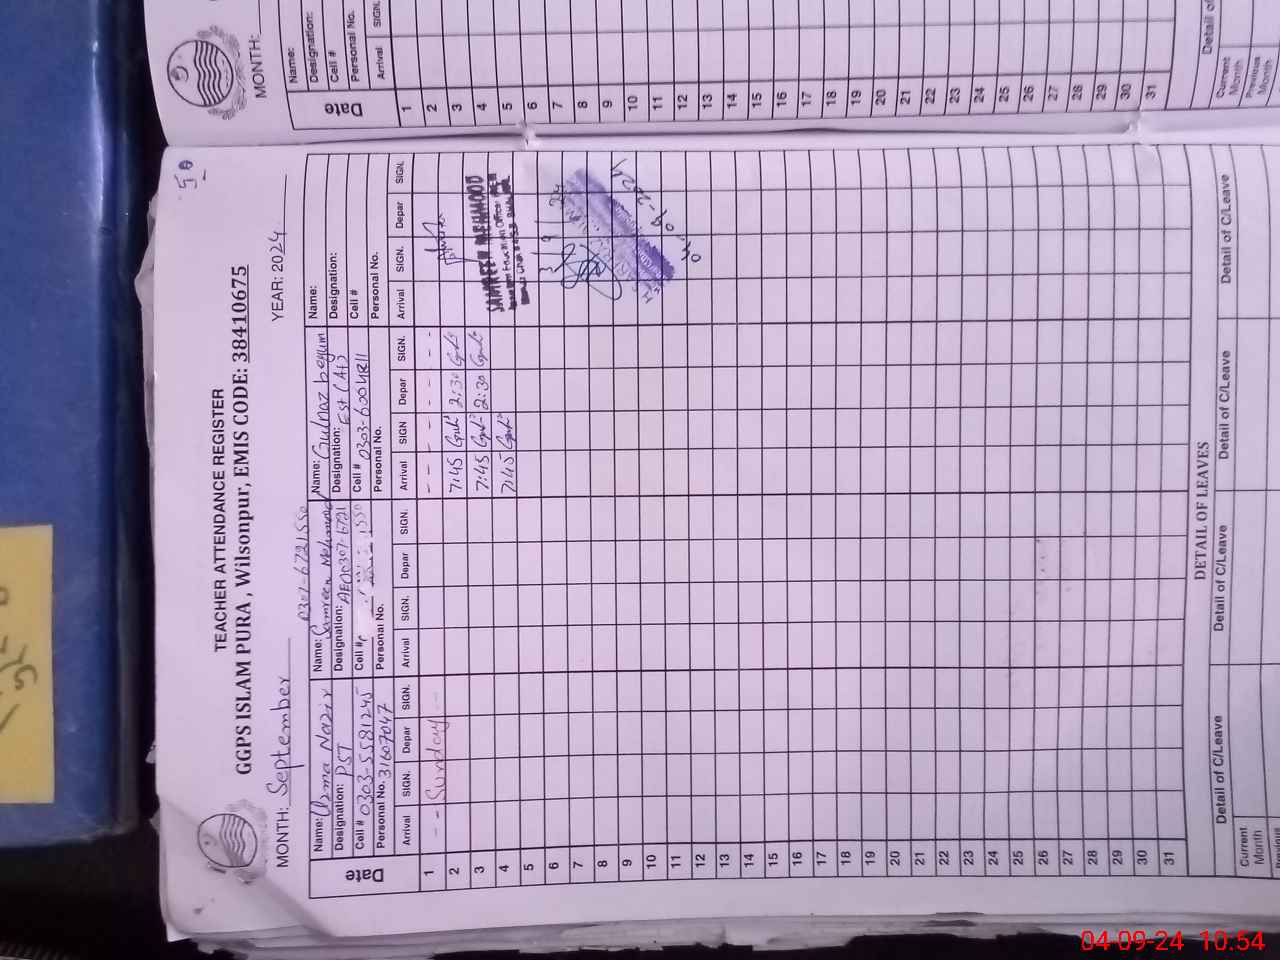 TEACHER ATTENDANCE REGISTER
GGPS ISLAM PURA , Wilsonpur, EMIS CODE: 38410675
MONTH: September YEAR: 2024
0307-6721550
Name: Uzma Nazir Name: Samreen Mehmood Name: Gulnaz begum Name:
Designation: PST Designation: AEO Designation: Est (Af) Designation:
Cell # 0303-5581245 Cell # Cell # 0303-6004211 Cell #
Personal No. 31607047 Personal No. Personal No. Personal No.
Date Arrival SIGN. Depar SIGN. Arrival SIGN. Depar SIGN. Arrival SIGN Depar SIGN. Arrival SIGN. Depar SIGN.
1 Sunday
2 7:45 Gul 2:30 Gul
3 7:45 Gul 2:30 Gul
4 7:45 Gul
SAMREEN MEHMOOD
5
6
7
8
9
10
11
12
13
14
15
16
17
18
19
20
21
22
23
24
25
26
27
28
29
30
31
DETAIL OF LEAVES
Detail of C/Leave Detail of C/Leave Detail of C/Leave Detail of C/Leave
Current Month
Previous
MONTH:
Name:
Designation:
Cell #
Personal No.
Date Arrival SIGN.
1
2
3
4
5
6
7
8
9
10
11
12
13
14
15
16
17
18
19
20
21
22
23
24
25
26
27
28
29
30
31
Detail of
Current Month
Previous Month
04-09-24 10:54